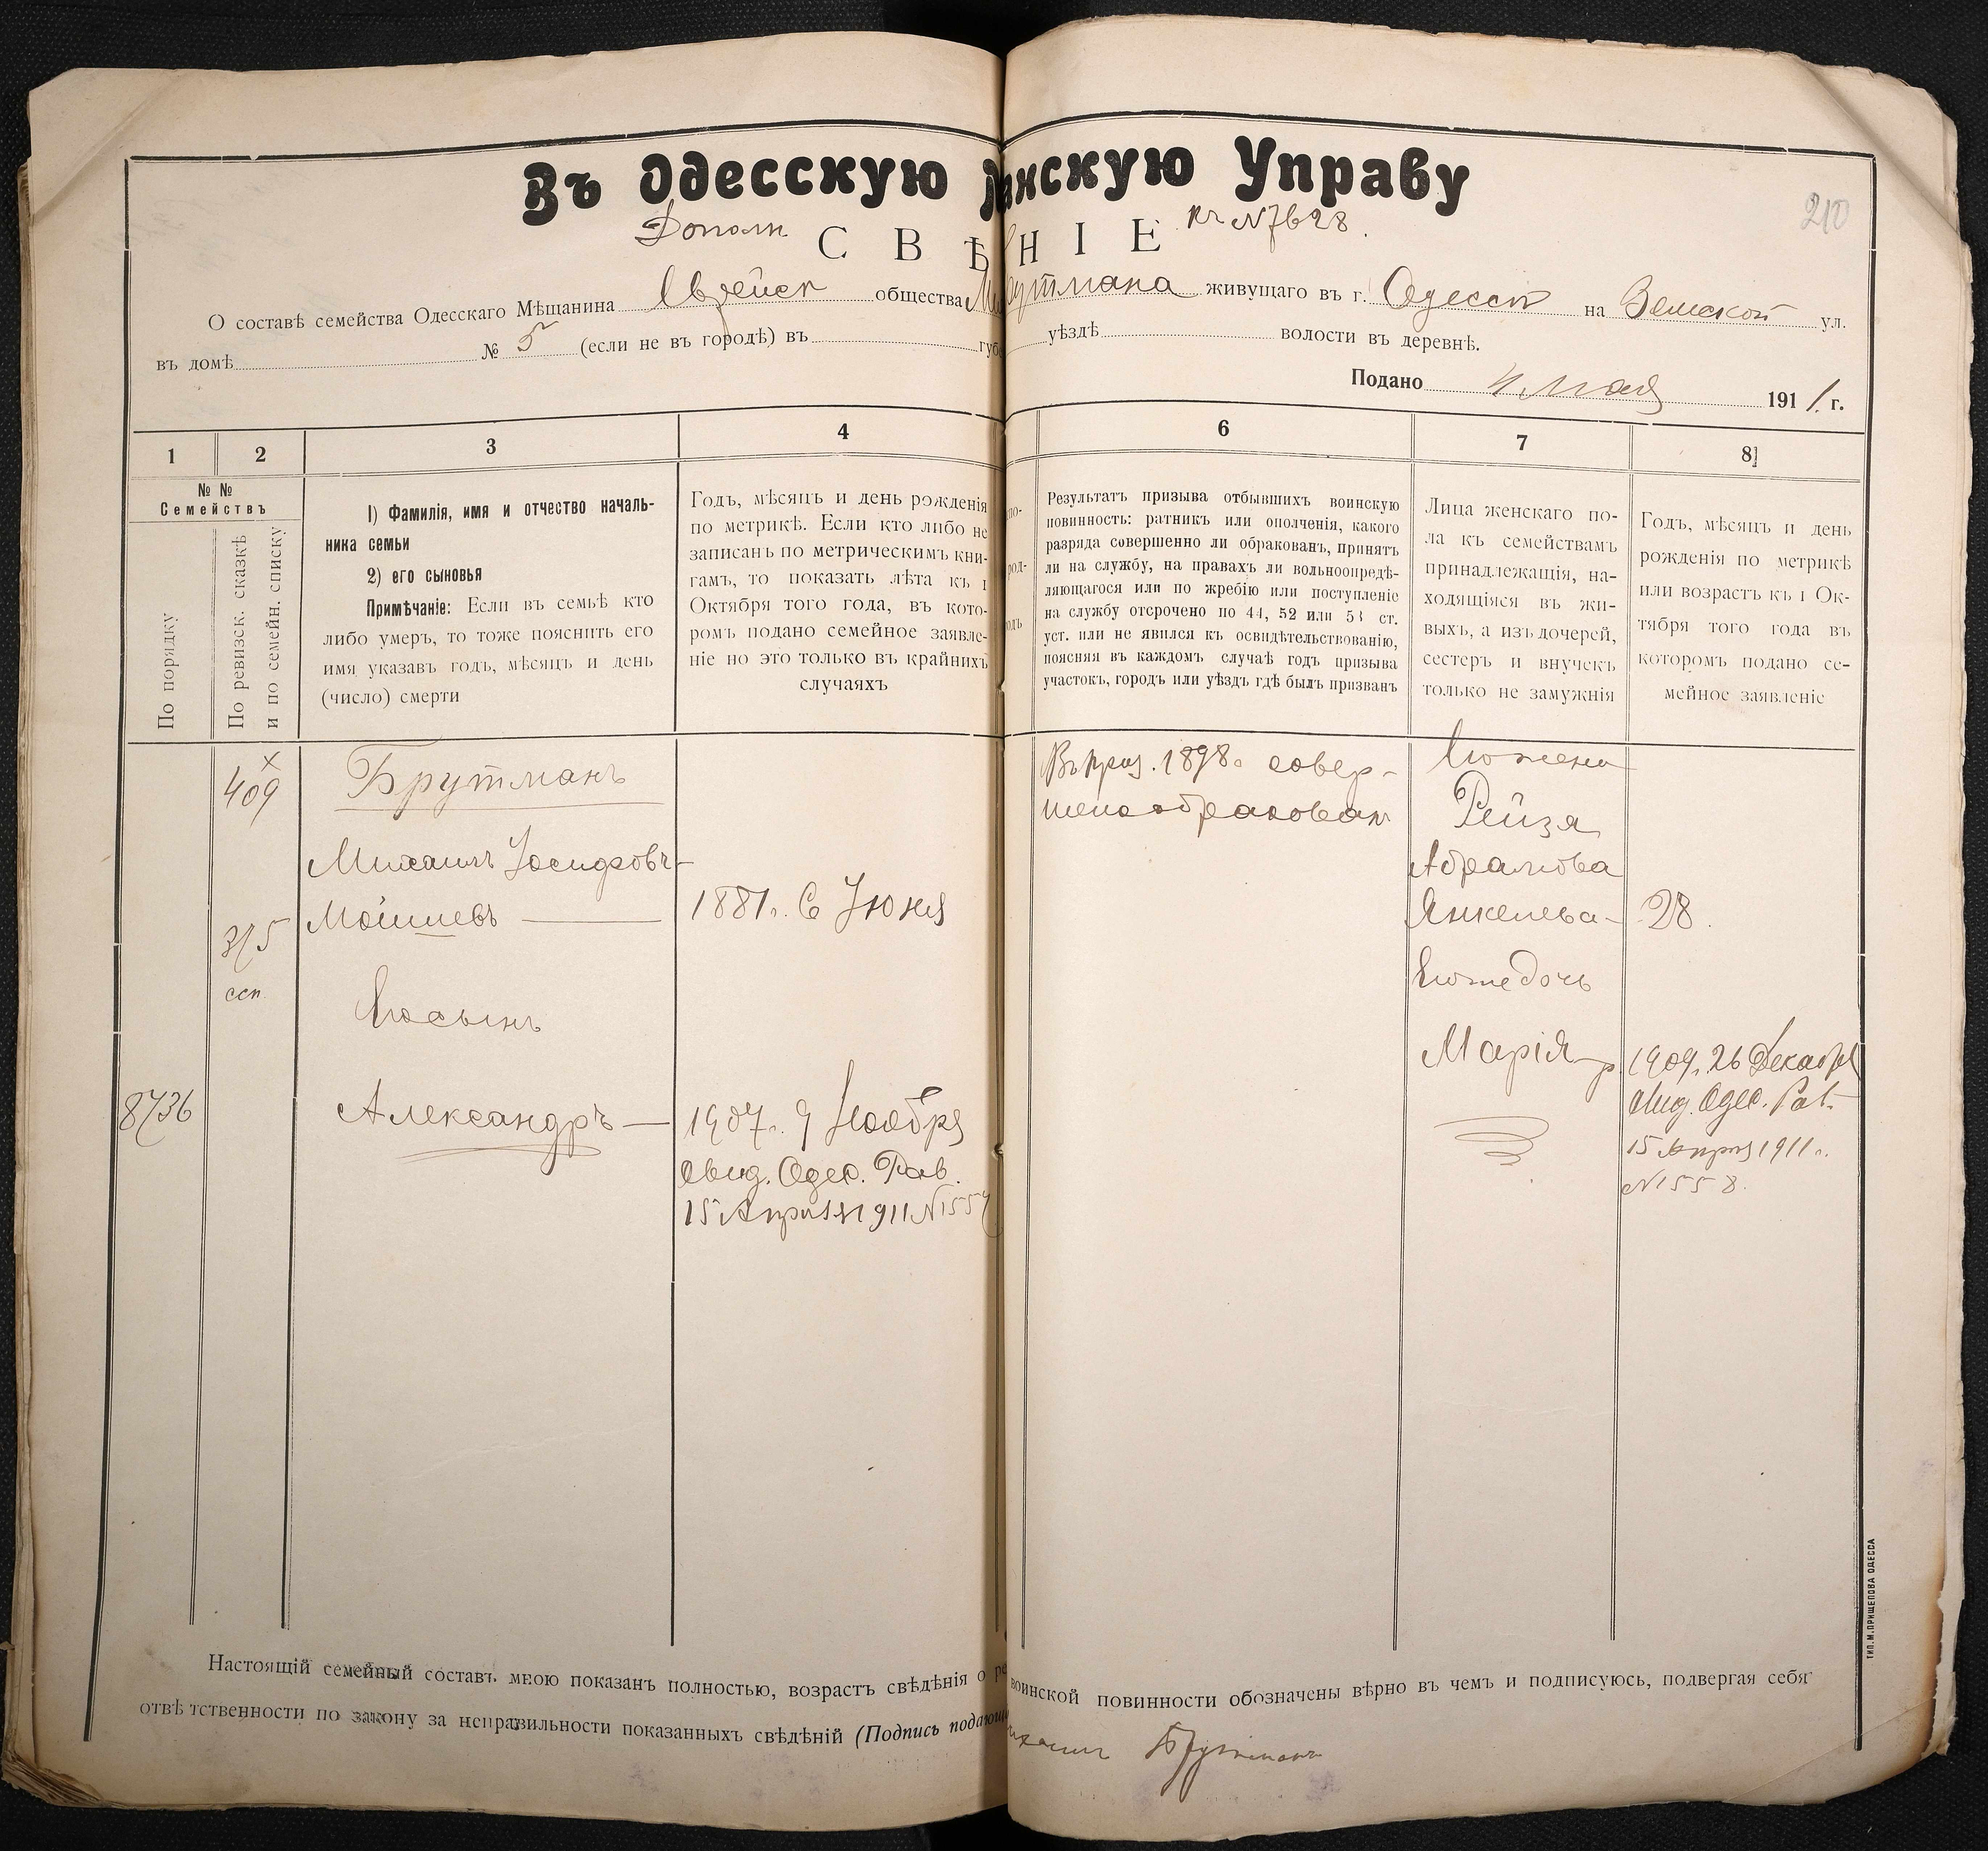 Въ Одесскую анскую Управу
Дополн СВѢНІЕ къ № 7628.
210
О составѣ семейства Одесскаго Мѣщанина Еврейск общества Ми утмана живущаго въ г. Одессѣ на Земской ул.
въ домѣ № 5 (если не въ городѣ) въ губе уѣздѣ волости въ деревнѣ.
Подано 4 Мая 1911 г.
1 2 3 4 6 7 8
№№
Семействъ
По порядку
По ревизск. сказкѣ
и по семейн. списку
1) Фамилія, имя и отчество началь-
ника семьи
2) его сыновья
Примѣчаніе: Если въ семьѣ кто
либо умеръ, то тоже пояснить его
имя указавъ годъ, мѣсяцъ и день
(число) смерти
Годъ, мѣсяцъ и день рожденія
по метрикѣ. Если кто либо не
записанъ по метрическимъ кни-
гамъ, то показать лѣта къ 1
Октября того года, въ кото-
ромъ подано семейное заявле-
ніе но это только въ крайнихъ
случаяхъ
по-
род-
одъ
Результатъ призыва отбывшихъ воинскую
повинность: ратникъ или ополченія, какого
разряда совершенно ли обракованъ, принятъ
ли на службу, на правахъ ли вольноопредѣ-
ляющагося или по жребію или поступленіе
на службу отсрочено по 44, 52 или 53 ст.
уст. или не явился къ освидѣтельствованію,
поясняя въ каждомъ случаѣ годъ призыва
участокъ, городъ или уѣздъ гдѣ былъ призванъ
Лица женскаго по-
ла къ семействамъ
принадлежащія, на-
ходящіяся въ жи-
выхъ, а изъ дочерей,
сестеръ и внучекъ
только не замужнія
Годъ, мѣсяцъ и день
рожденія по метрикѣ
или возрастъ къ 1 Ок-
тября того года въ
которомъ подано се-
мейное заявленіе
х
409
Брутманъ
Михаилъ Іосифовъ-
Мойшевъ
1881г. 6 Іюня
315
ссп
Его сынъ
8736
Александръ
1907г. 9 Ноября
свид. Одес. Рав.
15 Апреля 1911 № 1557
Въ приз. 1898г. совер-
шено обракован
Его жена
Рейзя
Абрамова
Янкелева
28.
Его же дочь
Марія р.
1909г. 26 Декабря
свид. Одес. Рав.
15 Апреля 1911г.
№ 1558.
Настоящій семейный составъ мною показанъ полностью, возрастъ свѣдѣнія о воинской повинности обозначены вѣрно въ чемъ и подписуюсь, подвергая себя
отвѣтственности по закону за неправильности показанныхъ свѣдѣній (Подпись подающ ихаилъ Брутманъ
ТИП. М. ПРИЩЕПОВА ОДЕССА